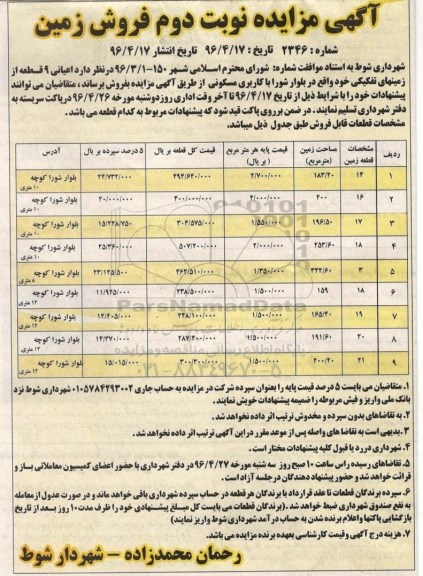 آگهی مزایده نوبت دوم فروش زمین
شماره : ۲۳۴۶ تاریخ : ۹۶/۴/۱۷ تاریخ انتشار ۹۶/۴/۱۷
شهرداری شوط به استناد موافقت شماره: شورای محترم اسلامی شهر ۱۵۰-۹۶/۳/۱ در نظر دارد اعیانی ۹ قطعه از
زمینهای تفکیکی خود واقع در بلوار شورا با کاربری مسکونی از طریق آگهی مزایده بفروش برساند، متقاضیان می توانند
پیشنهادات خود را با شرایط ذیل از تاریخ ۹۶/۴/۱۷ تا آخر وقت اداری روز دوشنبه مورخه ۹۶/۴/۲۶ در پاکت سربسته به
دفتر شهرداری تسلیم نمایند. در ضمن بر روی پاکت قید شود که پیشنهادات مربوط به کدام قطعه می باشد.
مشخصات قطعات قابل فروش طبق جدول ذیل میباشد.
ردیف مشخصات قطعه زمین مساحت زمین (مترمربع) قیمت پایه هر متر مربع (بریال) قیمت کل قطعه بر یال ۵ درصد سپرده بر یال آدرس
۱ ۱۴ ۱۸۳/۲۰ ۲/۷۰۰/۰۰۰ ۴۹۴/۶۴۰/۰۰۰ ۲۴/۷۳۲/۰۰۰ بلوار شورا کوچه ۱۰ متری
۲ ۱۶ ۲۰۰ ۲/۰۰۰/۰۰۰ ۴۰۰/۰۰۰/۰۰۰ ۲۰/۰۰۰/۰۰۰ بلوار شورا کوچه ۱۰ متری
۳ ۱۷ ۱۹۶/۵۰ ۱/۵۵۰/۰۰۰ ۳۰۴/۵۷۵/۰۰۰ ۱۵/۲۲۸/۷۵۰ بلوار شورا کوچه ۱۰ متری
۴ ۱۸ ۲۵۳/۶۰ ۲/۰۰۰/۰۰۰ ۵۰۷/۲۰۰/۰۰۰ ۲۵/۳۶۰/۰۰۰ بلوار شورا کوچه ۱۰ متری
۵ ۳ ۳۴۲/۶۰ ۱/۳۵۰/۰۰۰ ۴۶۲/۵۱۰/۰۰۰ ۲۳/۱۲۵/۵۰۰ بلوار شورا کوچه ۸ متری
۶ ۱۸ ۱۵۹ ۱/۵۰۰/۰۰۰ ۲۳۸/۵۰۰/۰۰۰ ۱۱/۹۲۵/۰۰۰ بلوار شورا کوچه ۱۲ متری
۷ ۱۹ ۱۶۵/۴۰ ۱/۵۰۰/۰۰۰ ۲۴۸/۱۰۰/۰۰۰ ۱۲/۴۰۵/۰۰۰ بلوار شورا کوچه ۱۲ متری
۸ ۲۰ ۱۹۱/۶۰ ۱/۵۰۰/۰۰۰ ۲۸۷/۴۰۰/۰۰۰ ۱۴/۳۷۰/۰۰۰ بلوار شورا کوچه ۱۲ متری
۹ ۲۱ ۲۰۰/۲۰ ۱/۵۰۰/۰۰۰ ۳۰۰/۳۰۰/۰۰۰ ۱۵/۰۱۵/۰۰۰ بلوار شورا کوچه ۱۲ متری
ParsNamadData
۰۲۱-۸۸۳۴۹۶۷۰-۵
۱. متقاضیان می بایست ۵ درصد قیمت پایه را بعنوان سپرده شرکت در مزایده به حساب جاری ۰۱۰۵۷۸۴۲۹۳۰۰۲ شهرداری شوط نزد
بانک ملی واریز و فیش مربوطه را ضمیمه پیشنهادات خویش نمایند.
۲. به تقاضاهای بدون سپرده و مخدوش ترتیب اثر داده نخواهد شد.
۳. بدیهی است به تقاضا های واصله پس از موعد مقرر در این آگهی ترتیب اثر داده نخواهد شد.
۴. شهرداری در رد یا قبول کلیه پیشنهادات مختار است.
۵. تقاضاهای رسیده راس ساعت ۱۰ صبح روز سه شنبه مورخه ۹۶/۴/۲۷ در دفتر شهرداری با حضور اعضای کمیسیون معاملاتی باز و
قرائت خواهد شد و حضور پیشنهاد دهندگان در جلسه آزاد است.
۶. سپرده برندگان قطعات تا عقد قرارداد با برندگان هر قطعه در حساب سپرده شهرداری باقی خواهد ماند و در صورت عدول از معامله
به نفع صندوق شهرداری ضبط خواهد شد. (برندگان قطعات می بایست کل مبلغ پیشنهادی خود را ظرف مدت ۱۰ روز بعد از تاریخ
بازگشایی پاکتها و اعلام برنده شدن به حساب درآمد شهرداری شوط واریز نمایند)
۷. هزینه درج آگهی و قیمت کارشناسی بعهده برنده مزایده می باشد.
رحمان محمدزاده – شهردار شوط